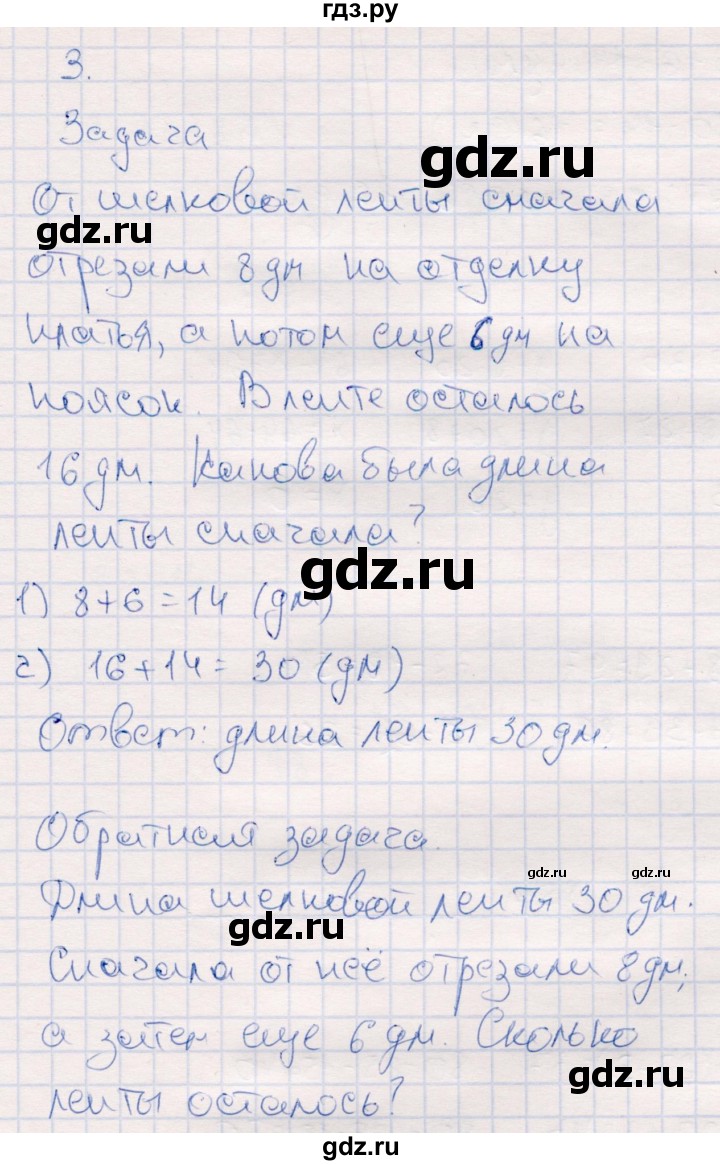 гдз.ру
3.
Задача
gdz.ru
От шелковой ленты сначала
gdz.ru
отрезали 8 дм на отделку
платья, а потом еще 6 дм на
поясок. В ленте осталось
16 дм. Какова была длина
ленты сначала?
gdz.ru
1) 8+6=14 (дм)
2) 16+14= 30 (дм)
Ответ: длина ленты 30 дм.
Обратная задача.
gdz.ru gdz.ru
Длина шелковой ленты 30 дм.
gdz.ru
Сначала от неё отрезали 8 дм,
а затем еще 6 дм. Сколько
gdz.ru
ленты осталось?
gdz.ru